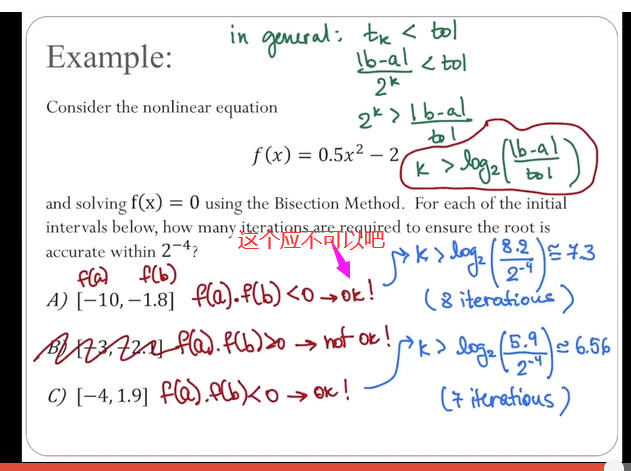 in general: tₖ < tol
Example:
|b-a|/2ᵏ < tol
Consider the nonlinear equation
2ᵏ > |b-a|/tol
f(x) = 0.5x² − 2
k > log₂(|b-a|/tol)
and solving f(x) = 0 using the Bisection Method. For each of the initial
intervals below, how many iterations are required to ensure the root is
accurate within 2⁻⁴?
这个应不可以吧
f(a) f(b)
A) [−10, −1.8] f(a).f(b)<0 → ok! → k > log₂(8.2/2⁻⁴) ≅ 7.3
(8 iterations)
B) [−3, −2.1] f(a).f(b)>0 → not ok!
C) [−4, 1.9] f(a).f(b)<0 → ok! → k > log₂(5.9/2⁻⁴) ≅ 6.56
(7 iterations)